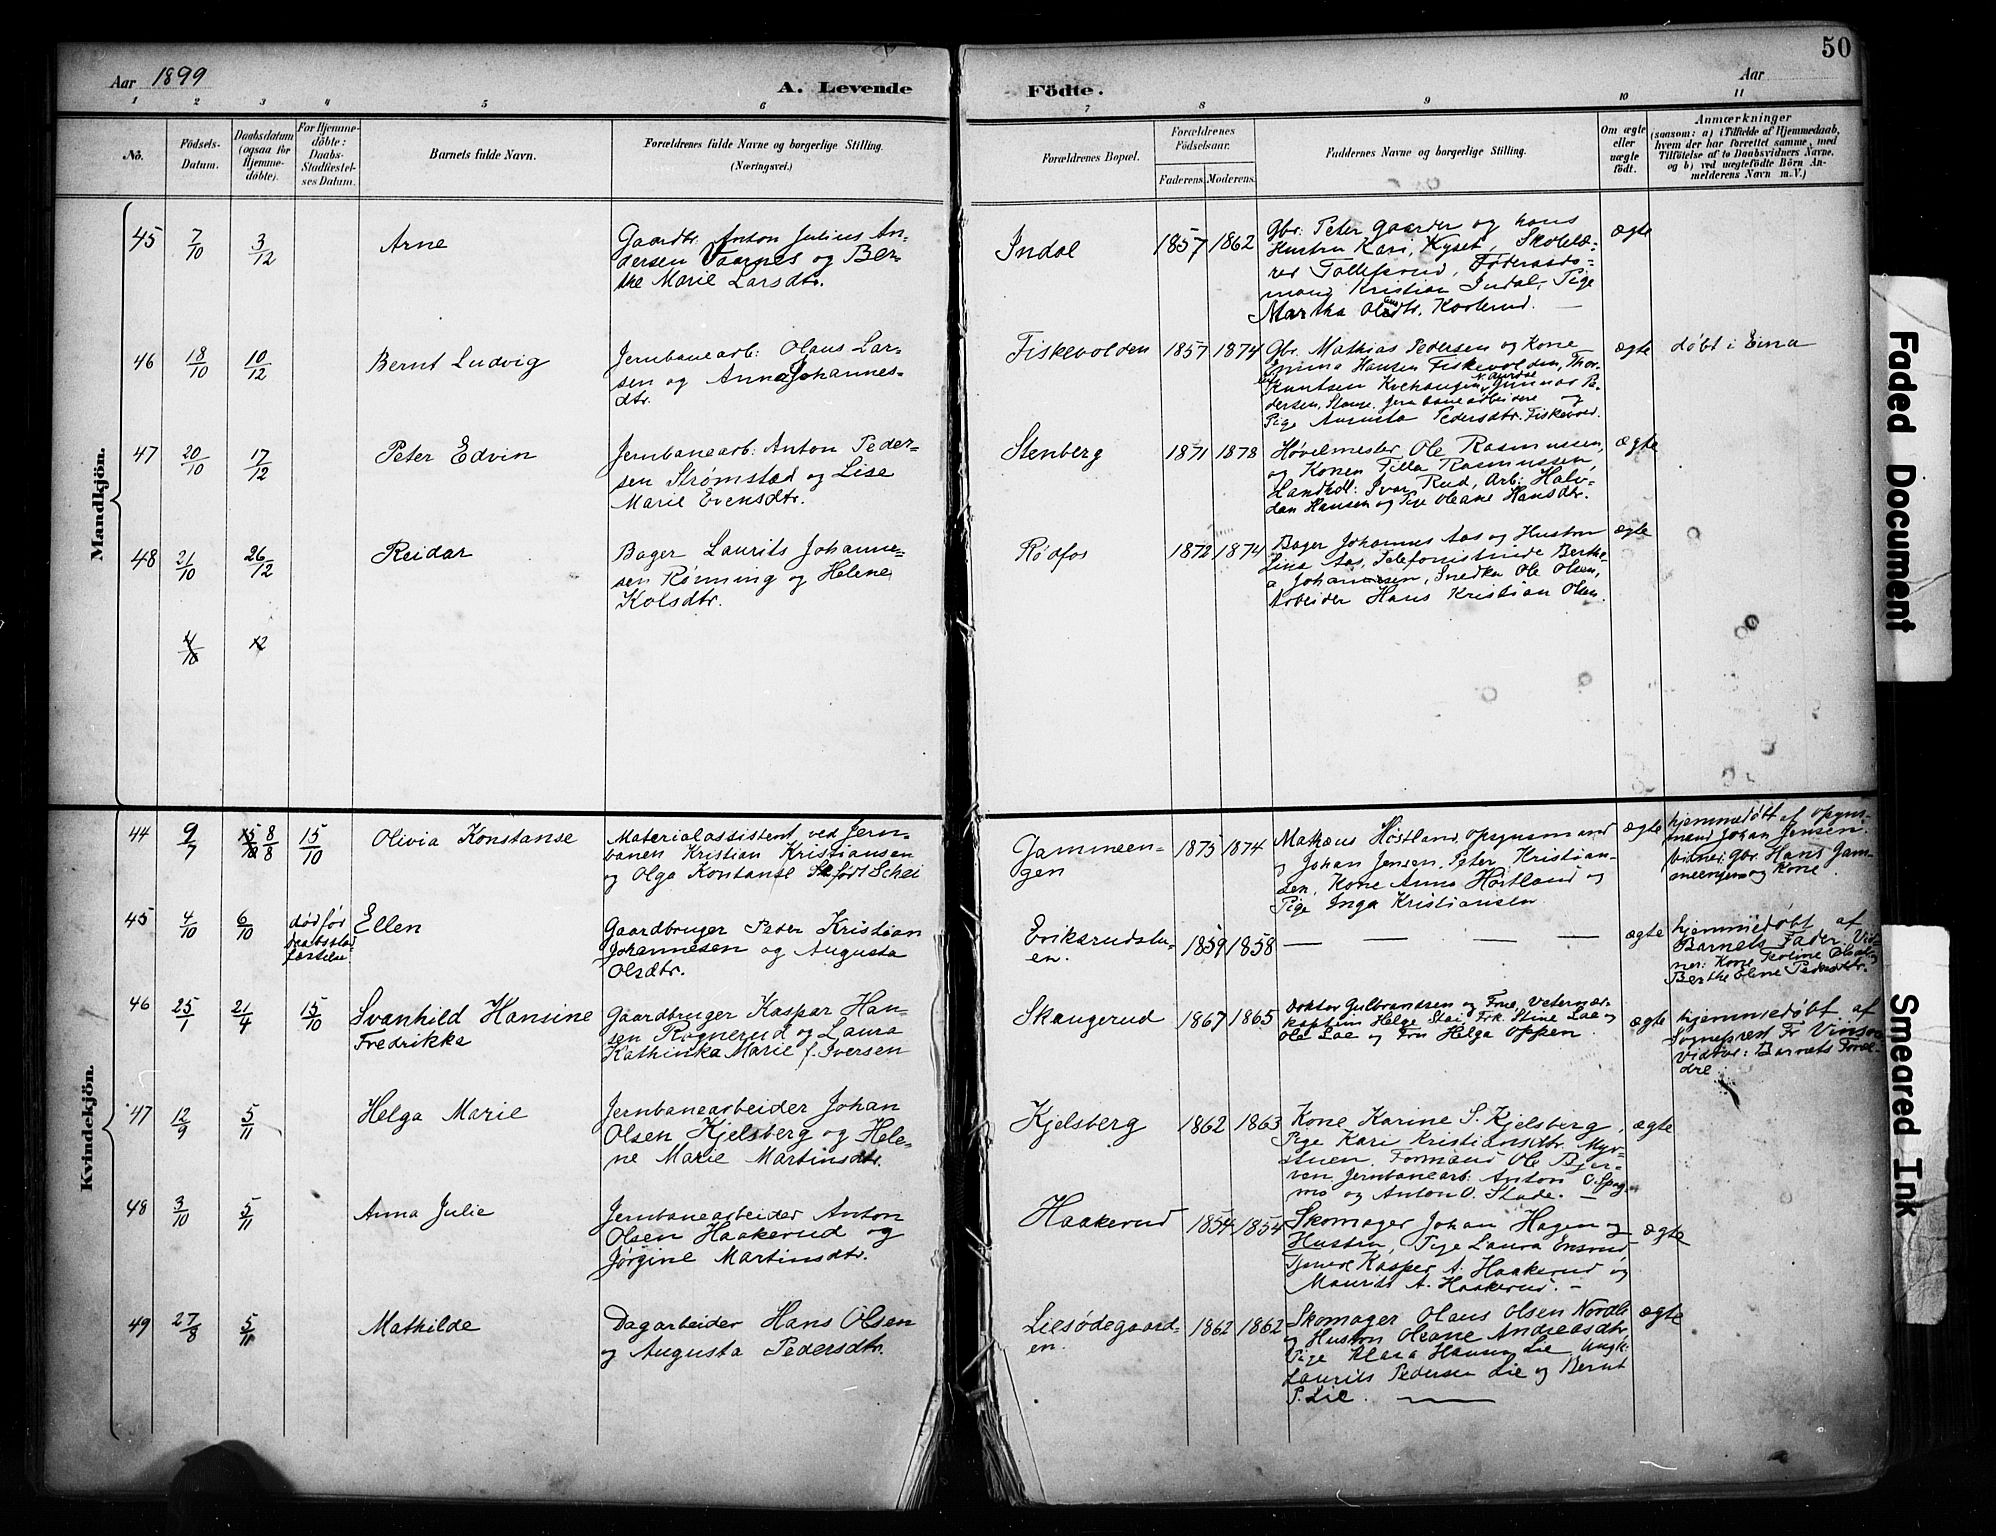 50
Aar 1899
A. Levende
Födte.
Aar
1 2 3 4 5 6 7 8 9 10 11
No.
Födsels-
Datum.
Daabsdatum
(ogsaa for
Hjemme-
döbte).
For Hjemme-
döbte:
Daabs-
Stadfæstel-
ses Datum.
Barnets fulde Navn.
Forældrenes fulde Navne og borgerlige Stilling.
(Næringsvei.)
Forældrenes Bopæl.
Forældrenes
Födselsaar.
Faderens. Moderens.
Faddernes Navne og borgerlige Stilling.
Om ægte
eller
uægte
födt.
Anmærkninger
(saasom: a) i Tilfælde af Hjemmedaab,
hvem der har forrettet samme, med
Tilföielse af to Daabsvidners Navne,
og b) ved uægtefödte Börn An-
melderens Navn m.V.)
Mandkjön.
45 7/10 3/12 Arne
Gaardbr. Anton Julius An-
dersen Taarnes og Ber-
the Marie Larsdtr.
Indal 1857 1862
Gbr. Peter Gaarder og hans
Hustru Kari, Kyset, Skolelæ-
rer Tollefsrud, Føderaads-
mand Kristian Indal, Pige
Martha Olausdtr. Kaalerud.
ægte
46 18/10 10/12 Bernt Ludvig
Jernbanearb: Olaus Lar-
sen og Anna Johannes-
dtr.
Fiskevolden 1857 1874
Gbr. Mathias Pedersen og Kone
Emma Hansen Fiskevolden, Thor-
Knutsen Kvehaugen, N. Aurdal
dersen, Stange. Jernbanearbeidere og
Pige Augusta Pedersdtr. Fiskevold.
ægte
døbt i Eina
47 20/10 17/12 Peter Edvin
Jernbanearb: Anton Peder-
sen Strømstad og Lise
Marie Evensdtr.
Stenberg 1871 1878
Høvelmester Ole Rasmussen,
og Konen Tilla Rasmussen,
Handhdl: Ivar Rud, Arb: Halv-
dan Hansen og Pige Oleane Hansdtr.
ægte
48 21/10 26/12 Reidar
Bager Laurits Johanne-
sen Rønning og Helene
Kolsdtr.
Rødfos 1872 1874
Bager Johannes Aas og Hustru
Lina Aas, Telefonistinde Berthe-
a Johannesen, Snedker Ole Olsen,
Arbeider Hans Kristian Olsen.
ægte
Kvindekjön.
44 9/7 8/8 15/10 Olivia Konstanse
Materialassistent ved Jern-
banen Kristian Kristiansen
og Olga Kontanse født Schei
Jammeen-
gen 1873 1874
Mathæus Høstland, opsynsmand
Johan Jensen. Peter Kristian-
sen. Kone Anna Høstland og
Pige Inga Kristiansen
ægte
hjemmedøbt af opsyns-
mand Johan Jensen.
Vidner: Gbr. Hans Jam-
meengen og Kone.
45 4/10 6/10 død før
daabsstad
fæstelse
Ellen
Gaardbruger Peder Kristian
Johannesen og Augusta
Olsdtr.
Eriksrudstu-
en. 1859 1858 — — — —
ægte
hjemmedøbt af
Barnets Fader. Vid-
ner: Kone
Berthe Eline Pedersdtr.
46 25/1 21/4 15/10 Svanhild Hansine
Fredrikke
Gaardbruger Kaspar Han-
sen Rognerud og Laura
Kathinka Marie f. Iversen
Skaugerud 1867 1865
Doktor Gulbrandsen og Frue, Veterinær-
kaptein Helge Stai, Frk. Stine Lae og
Ole Lae og Fru Helga Oppen.
ægte
hjemmedøbt af
Sogneprest Fr Vinsnes
Vidner: Barnets Foræl-
dre
47 12/9 5/11 Helga Marie
Jernbanearbeider Johan
Olsen Kjelsberg og Hele-
ne Marie Martinsdtr.
Kjelsberg 1862 1863
Kone Karine S. Kjelsberg,
Pige Kari Kristiansdtr. Myr-
stuen. Formand Ole Bjer-
ven, Jernbanearb: Anton O.
mo og Anton O. Stade. —
ægte
48 3/10 5/11 Anna Julie
Jernbanearbeider Anton
Olsen Haakerud og
Jørgine Martinsdtr.
Haakerud 1854 1854
Skomager Johan Hagen og
Hustru, Pige Laura Ensrud,
Tjener Kasper A. Haakerud og
Maurits A. Haakerud. —
ægte
49 27/8 5/11 Mathilde
Dagarbeider Hans Olsen
og Augusta Pedersdtr.
Liesødegaard-
en. 1862 1862
Skomager Olaus Olsen Nordli
og Hustru Oleane Andreasdtr.
Pige Klara Hansen Lie, Ungk:
Laurits Pedersen Lie og Bernt
P. Lie. —
ægte
Faded Document
Smeared Ink